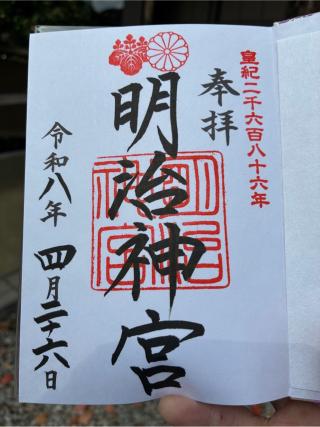 皇紀二千六百八十六年
奉拝
明治神宮
令和八年 四月二十六日